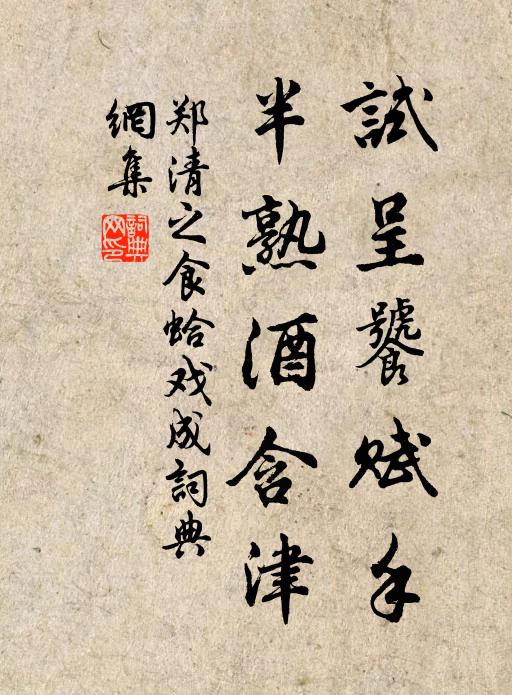 試呈饕賦手
半熟酒含津
郑清之食蛤戏成詞典
網集
詞典网印